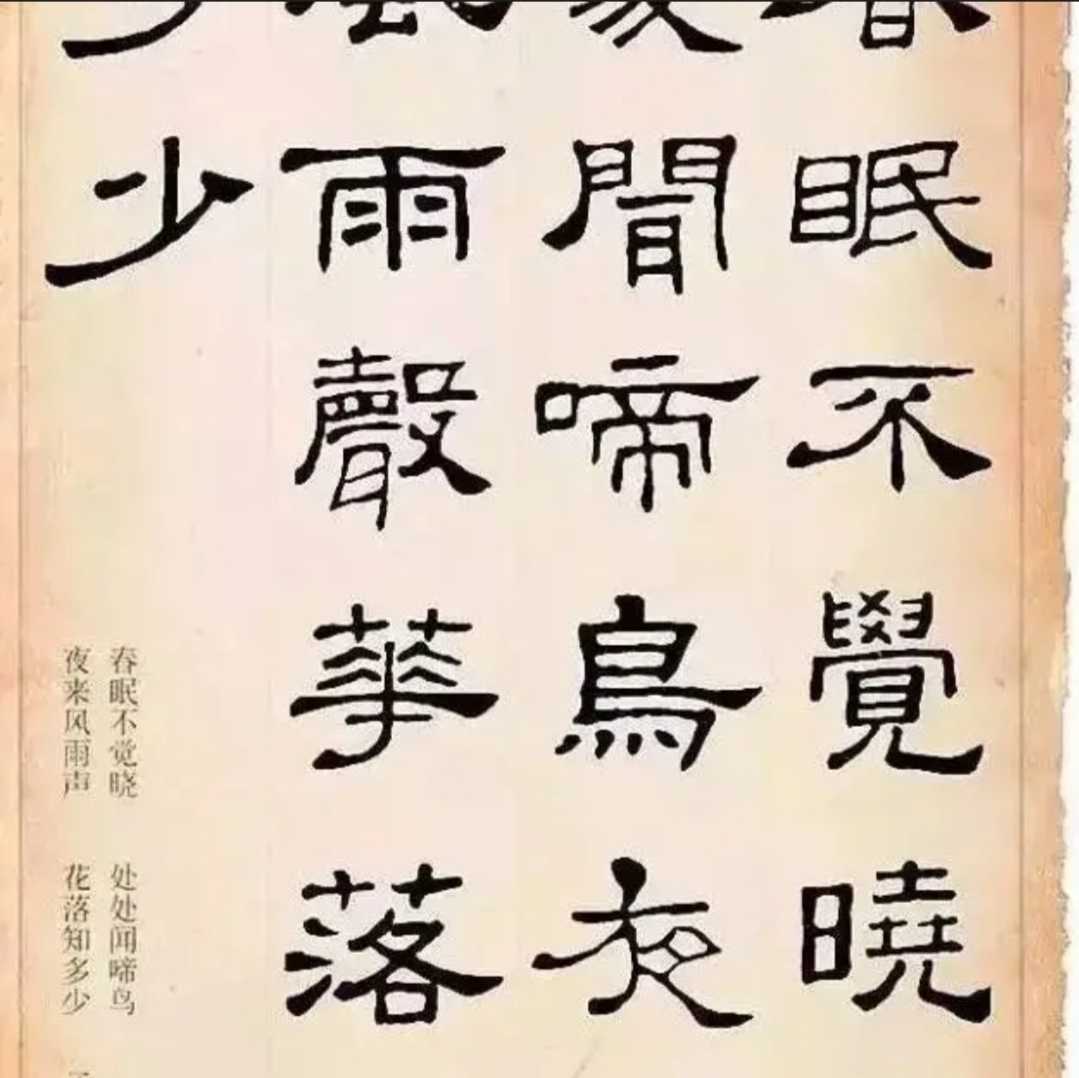 眠不覺曉
聞啼鳥夜
雨聲華落
少
春眠不觉晓 处处闻啼鸟
夜来风雨声 花落知多少